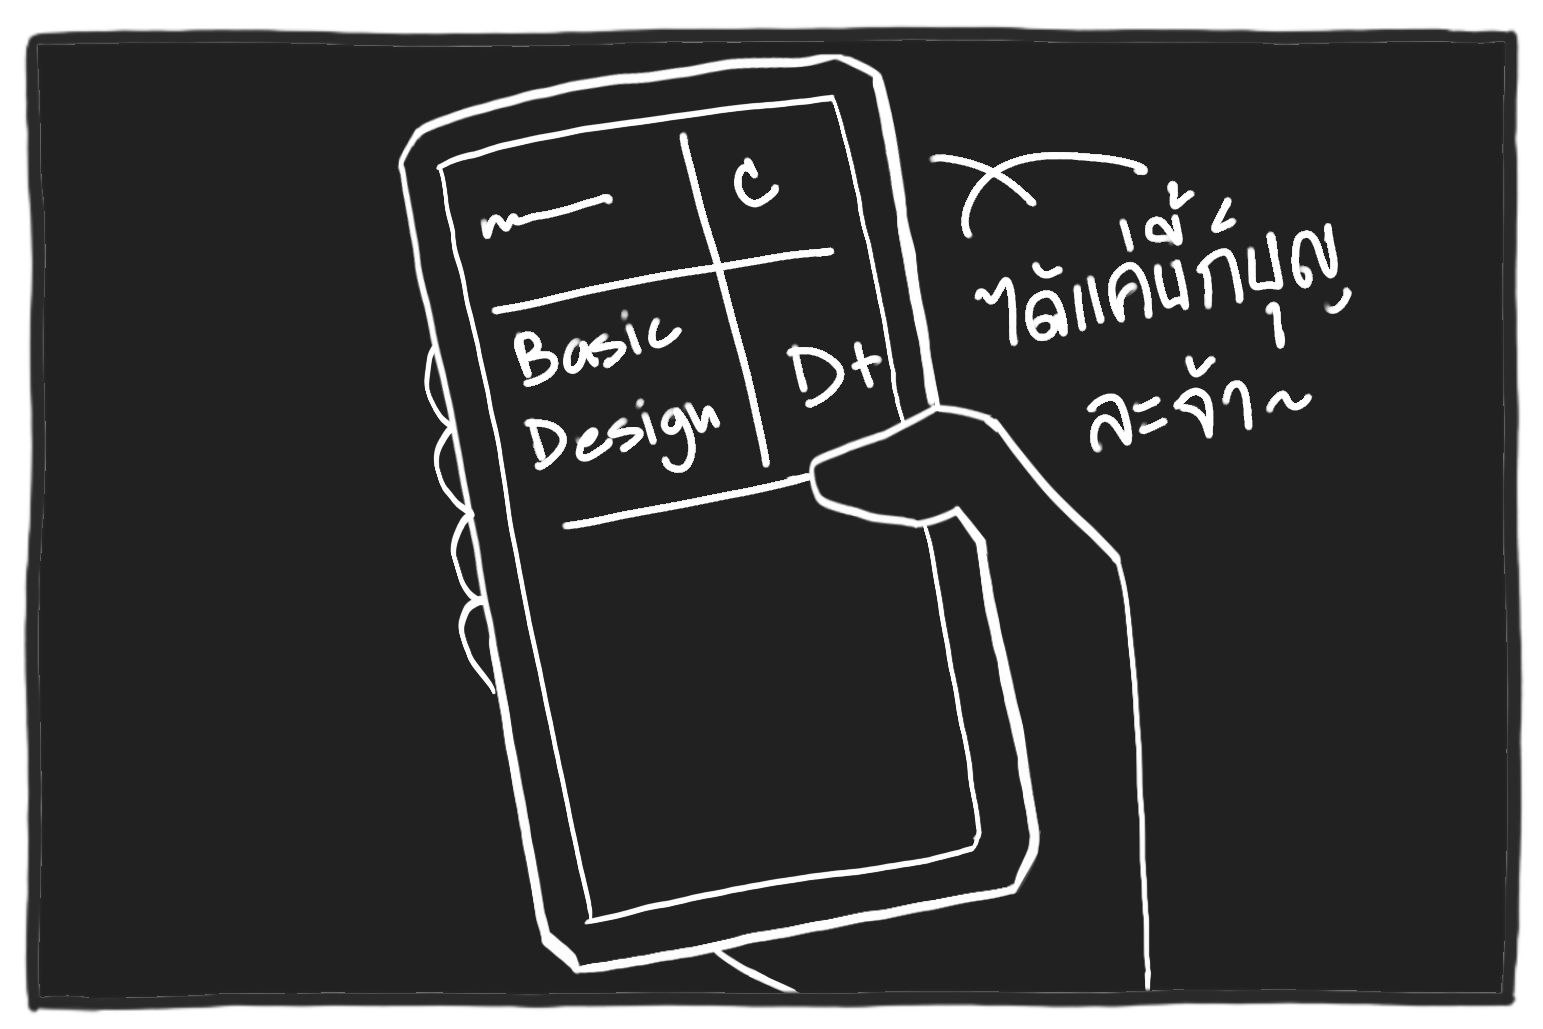 C
Basic
Design
D+
ได้แค่นี้ก็บุญ
ละจ้า~